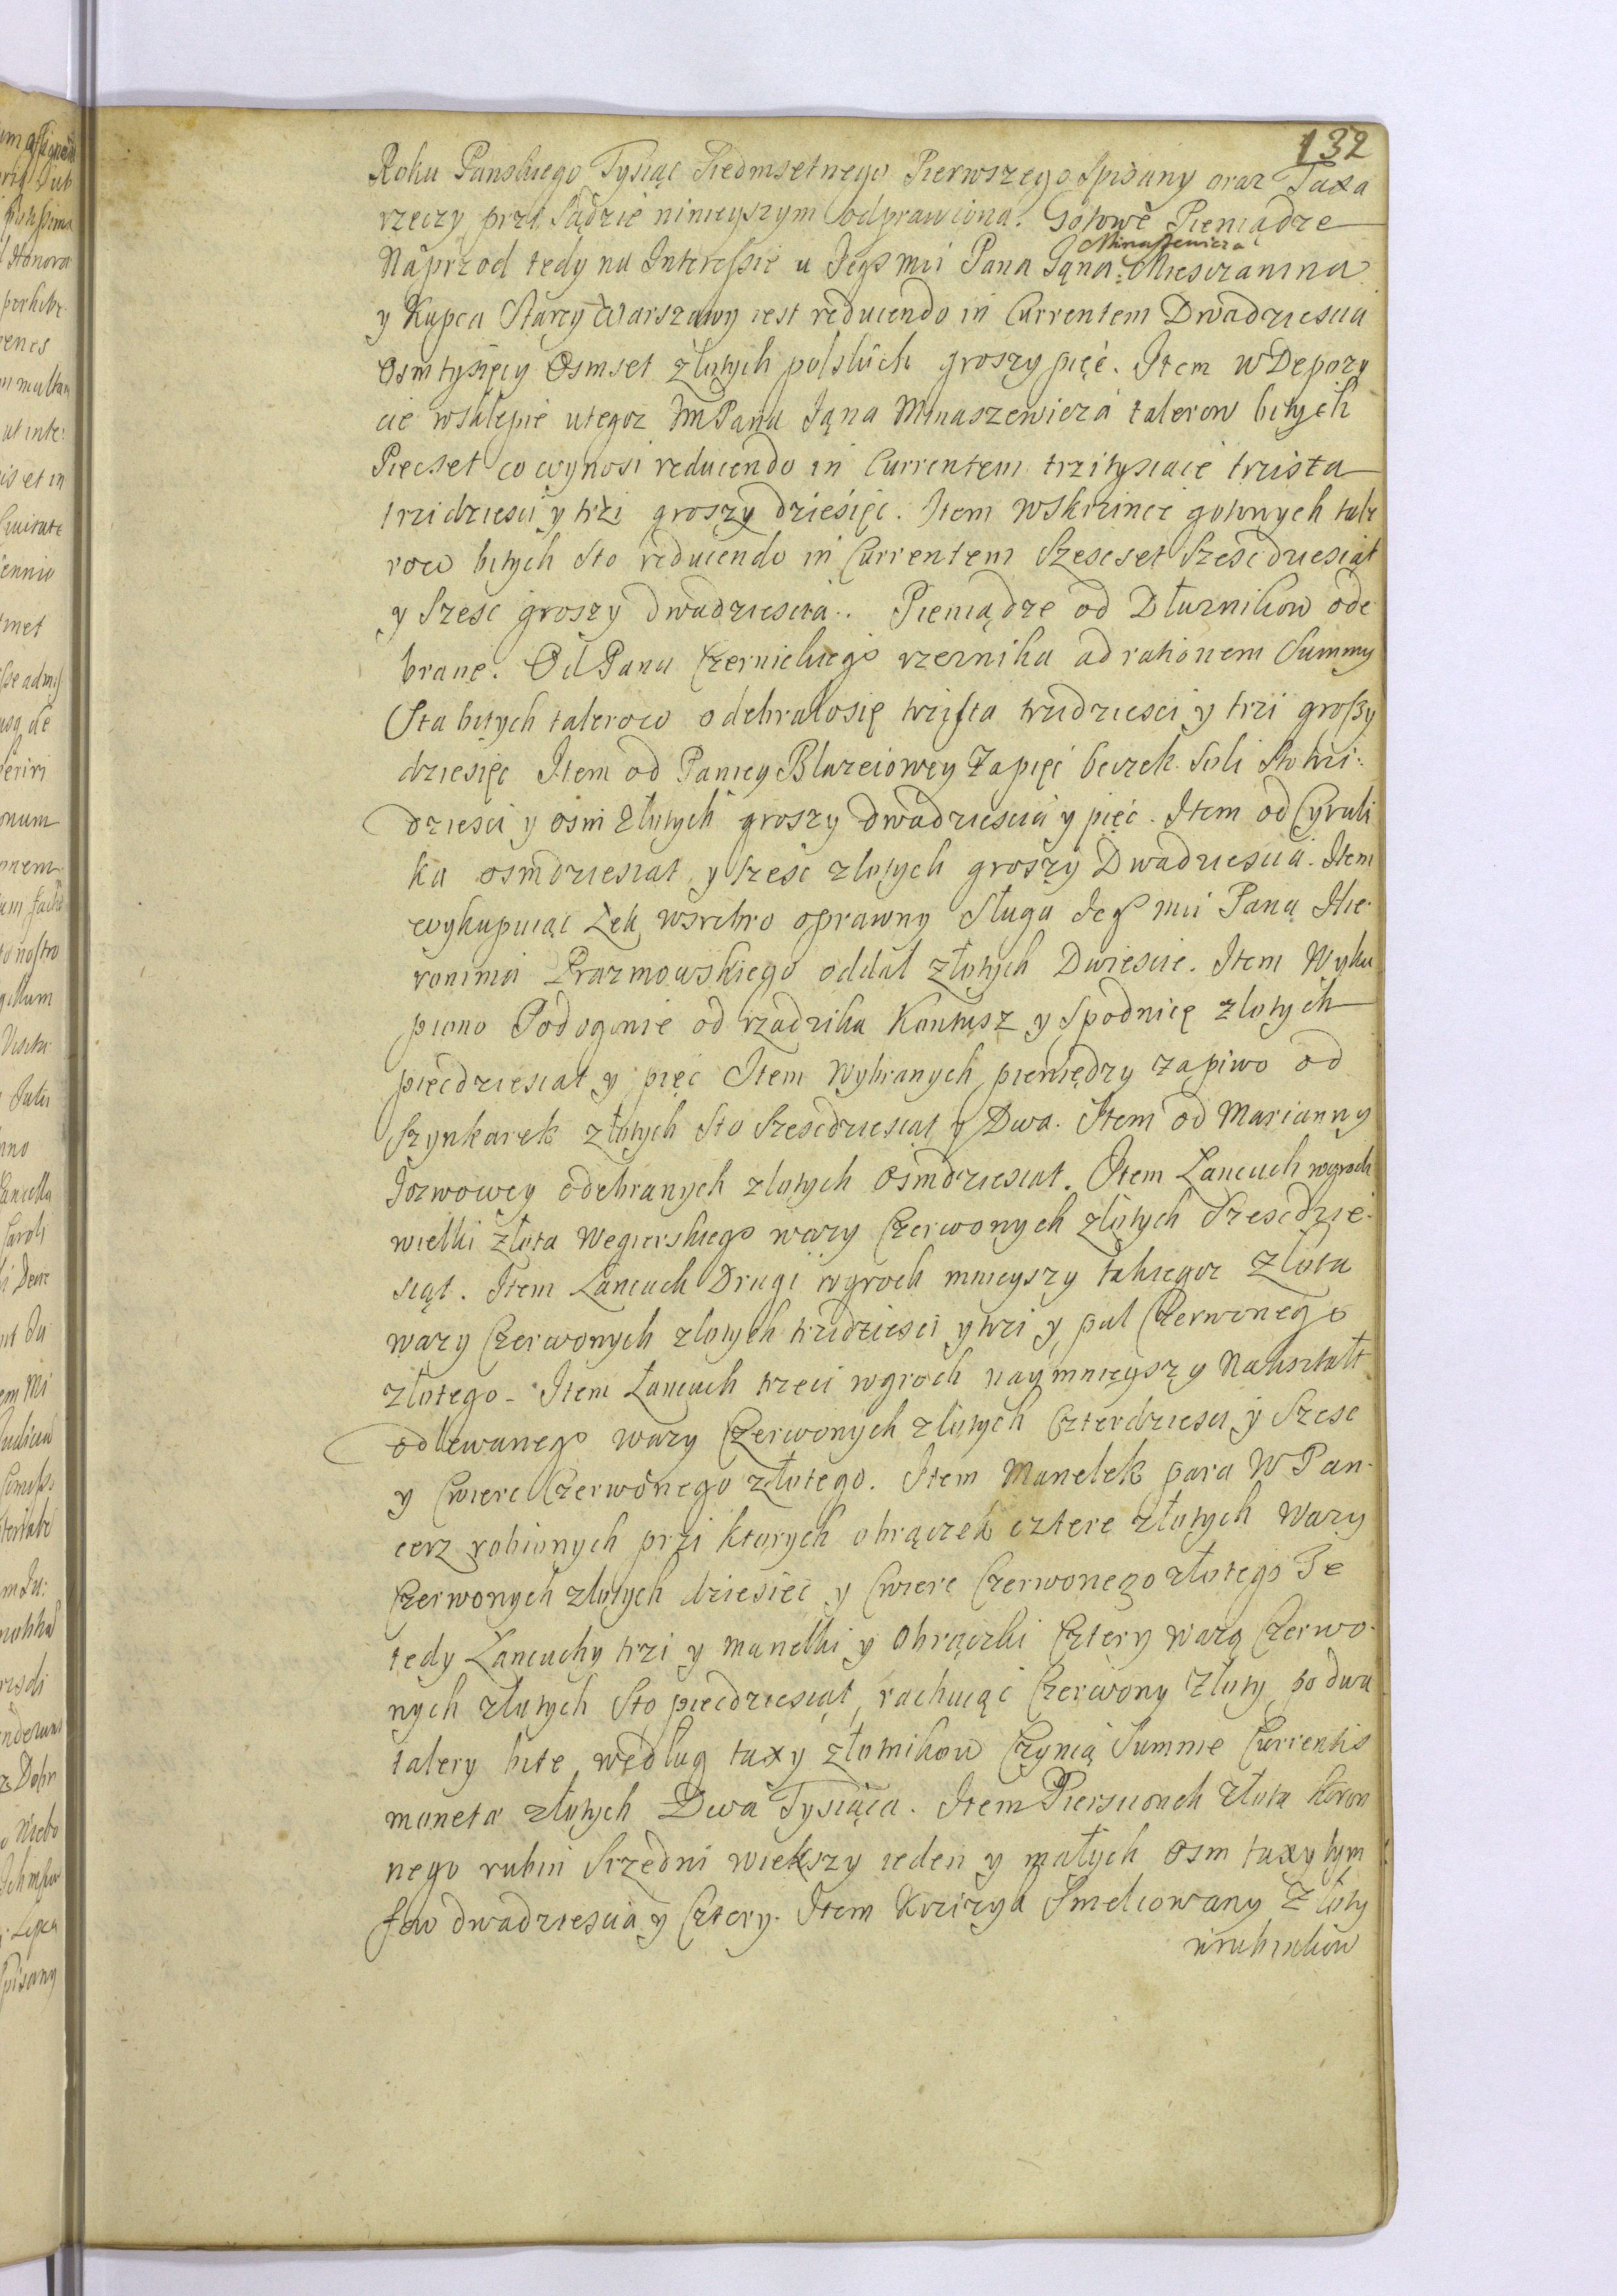 132
Roku Panskiego Tysiąc Siedmsetnego Pierwszego Spisany oraz Taxa
rzeczy przi Sądzie ninieyszym odprawiona. Gotowe Pieniądze
Naprzod tedy na Interessie u Jego Mći Pana Jąna Minaszewicza Miesczanina
y Kupca Starey Warszawy iest reducendo in Currentem Dwadziescia
osm tysięcy Osmset złotych polskich groszy pięć. Item w Depozy
cie w Sklepie u tegoz JM Pana Jąna Minaszewicza talerow bitych
Piecset co wynosi reducendo in Currentem trzitysiące trzista
trzidziesci y trzi groszy dziesięc. Item w Skrzince gotowych tale
row bitych Sto reducendo in Currentem Szescset Szescdziesiąt
y Szesc groszy dwadziescia. Pieniądze od Dłuznikow ode
brane. Od Pana Czernickiego rzeznika ad rationem Summy
Sta bitych talerow odebrałosię trzista trzidziesci y trzi groszy
dziesięc Item od Paniey Blazeiowey Za pięć beczek Soli Sto trzi
dziesci y osm złotych groszy dwadziescia y pięć. Item od Cyruli
ka osmdziesiat y szesc zlotych groszy Dwadziescia. Item
wykupuiąc Zek wsrebro oprawny Sługa Jego Mći Paną Hie
ronima Prazmowskiego oddał złotych Dwiescie. Item Wyku
piono Podogonie od rzadzika Kontusz y Spodnicę zlotych
piećdziesiat y pięć Item Wybranych pieniędzy za piwo od
Szynkarek złotych Sto Szescdziesiąt y Dwa. Item od Marianny
Jozwowey odebranych zlotych Osmdziesiat. Item Lancuch wgroch
wielki złota Wegierskiego wazy Czerwonych złotych Szescdzie
siąt. Item Łancuch Drugi wgroch mnieyszy takiegoz Złota
wazy Czerwonych zlotych trzidziesci y trzi y puł Czerwonego
złotego. Item Łancuch trzeci wgroch naymnieyszy Nakształt
odlewanego wazy Czerwonych złotych Czterdziesci y Szesc
y Cwierc Czerwonego złotego. Item Manelek para W Pan
cerz robionych przi ktorych obrączek cztere złotych Wazy
Czerwonych zlotych dziesięc y Cwierc Czerwonego złotego Te
tedy Łancuchy trzi y manelki y Obrączki Cztery wazą Czerwo
nych zlotych Sto piecdziesiąt, rachuiąc Czerwony Złoty po dwa
talery bite według taxy złotnikow Czynią Summe Currentis
moneta złotych Dwa Tysiąca. Item Piersionek złota Koron
nego rubin Srzedni wiekszy ieden y małych osm taxy tym
fow dwadziescia y Cztery. Item Krzizyk Smelcowany Złoty
wrubinkow